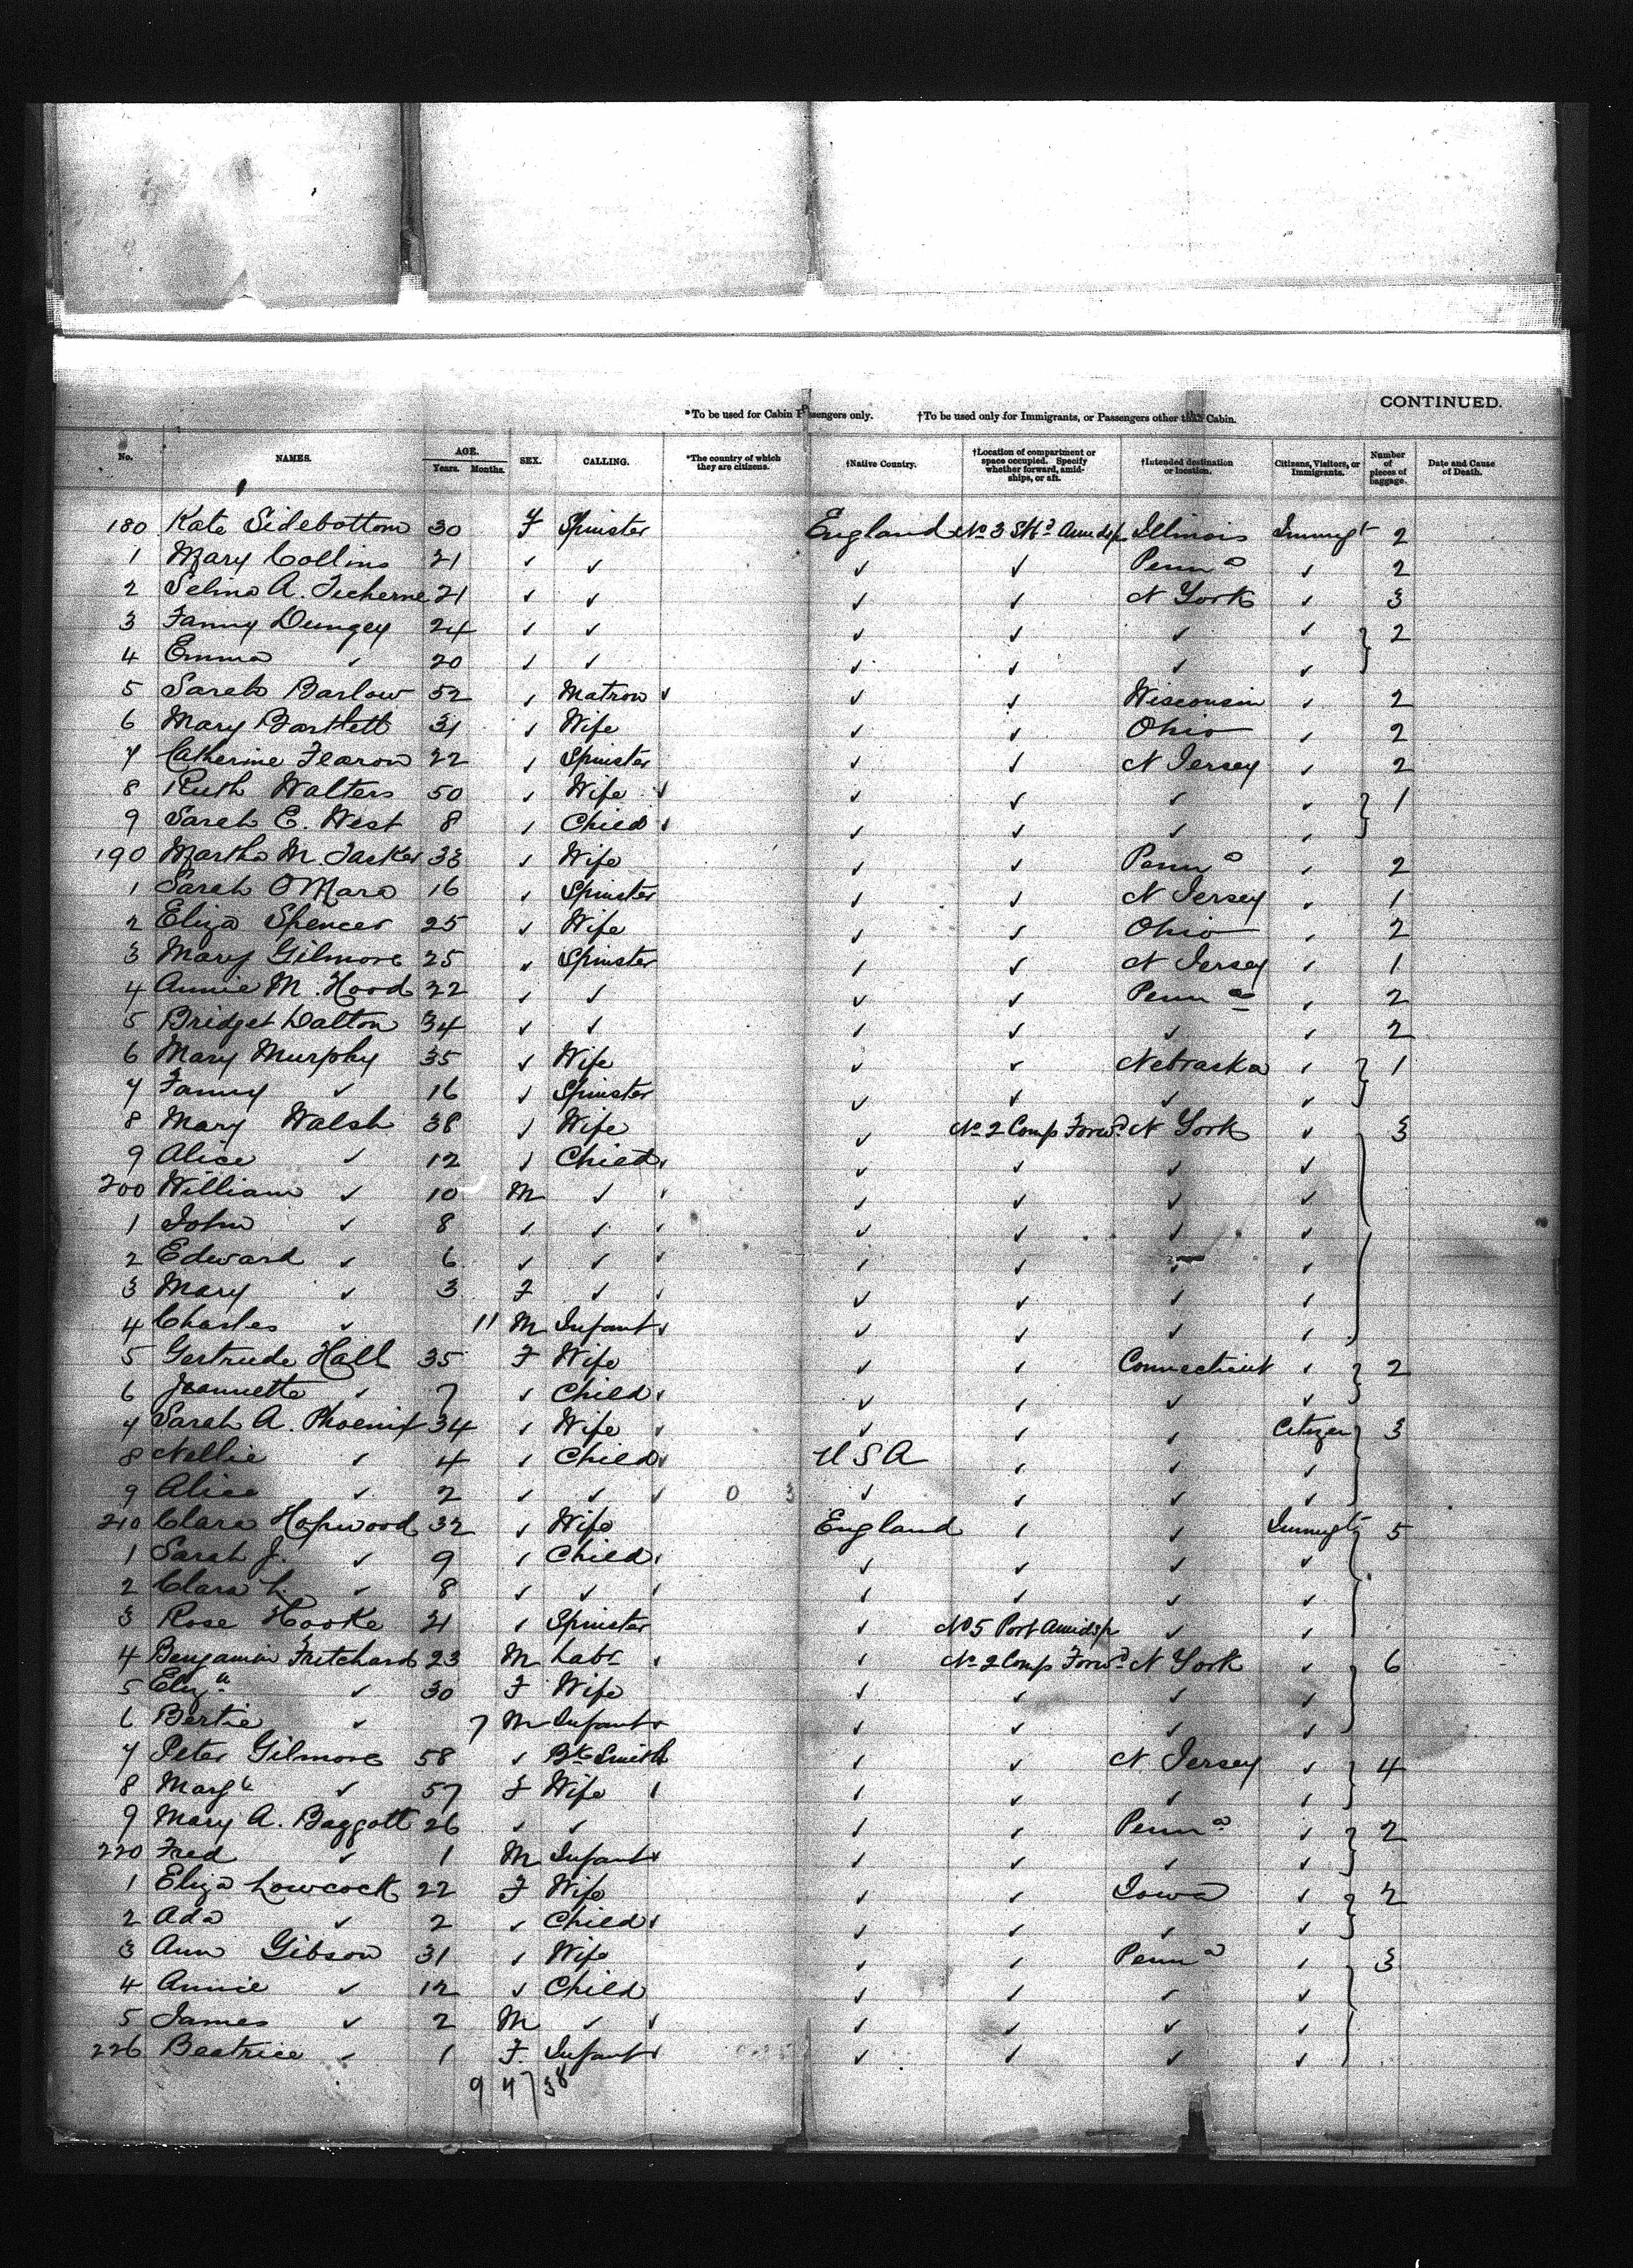 CONTINUED.
*To be used for Cabin Passengers only. †To be used only for Immigrants, or Passengers other than Cabin.
No. NAMES. AGE. Years. Months. SEX. CALLING. *The country of which they are citizens. †Native Country. †Location of compartment or space occupied. Specify whether forward, amidships, or aft. †Intended destination or location. Citizens, Visitors, or Immigrants. Number of pieces of baggage. Date and Cause of Death.
180 Kate Sidebottom 30 F Spinster England No 3 Illinois Immigt 2
1 Mary Collins 21 ✓ ✓ ✓ ✓ Penna ✓ 2
2 Selina A. 21 ✓ ✓ ✓ ✓ N York ✓ 3
3 Fanny Dungey 24 ✓ ✓ ✓ ✓ ✓ ✓ } 2
4 Emma ✓ 20 ✓ ✓ ✓ ✓ ✓ ✓
5 Sarah Barlow 52 ✓ Matron ✓ ✓ ✓ Wisconsin ✓ 2
6 Mary Bartlett 31 ✓ Wife ✓ ✓ Ohio ✓ 2
7 Catherine Fearon 22 ✓ Spinster ✓ ✓ N Jersey ✓ 2
8 Ruth Walters 50 ✓ Wife ✓ ✓ ✓ ✓ ✓ } 1
9 Sarah E. West 8 ✓ Child ✓ ✓ ✓ ✓ ✓
190 Martha M. Tasker 33 ✓ Wife ✓ ✓ Penna ✓ 2
1 Sarah OMara 16 ✓ Spinster ✓ ✓ N Jersey ✓ 1
2 Eliza Spencer 25 ✓ Wife ✓ ✓ Ohio ✓ 2
3 Mary Gilmore 25 ✓ Spinster ✓ ✓ N Jersey ✓ 1
4 Annie M. Hood 22 ✓ ✓ ✓ ✓ Penna ✓ 2
5 Bridget Dalton 34 ✓ ✓ ✓ ✓ ✓ ✓ 2
6 Mary Murphy 35 ✓ Wife ✓ ✓ Nebraska ✓ } 1
7 Fanny ✓ 16 ✓ Spinster ✓ ✓ ✓ ✓
8 Mary Walsh 38 ✓ Wife ✓ No 2 Comp Forwd N York ✓ } 3
9 Alice ✓ 12 ✓ Child ✓ ✓ ✓ ✓ ✓
200 William ✓ 10 M ✓ ✓ ✓ ✓ ✓ ✓
1 John ✓ 8 ✓ ✓ ✓ ✓ ✓ ✓ ✓
2 Edward ✓ 6 ✓ ✓ ✓ ✓ ✓ ✓ ✓
3 Mary ✓ 3 F ✓ ✓ ✓ ✓ ✓ ✓
4 Charles ✓ 11 M Infant ✓ ✓ ✓ ✓ ✓
5 Gertrude Hall 35 F Wife ✓ ✓ Connecticut ✓ } 2
6 Jeannette ✓ 7 ✓ Child ✓ ✓ ✓ ✓ ✓
7 Sarah A. Phoenix 34 ✓ Wife ✓ ✓ ✓ ✓ Citizen } 3
8 Nellie ✓ 4 ✓ Child ✓ U S A ✓ ✓ ✓
9 Alice ✓ 2 ✓ ✓ ✓ 0 3 ✓ ✓ ✓ ✓
210 Clara Hopwood 32 ✓ Wife England ✓ ✓ Immigt } 5
1 Sarah J. ✓ 9 ✓ Child ✓ ✓ ✓ ✓ ✓
2 Clara L. ✓ 8 ✓ ✓ ✓ ✓ ✓ ✓ ✓
3 Rose Hooke 21 ✓ Spinster ✓ No 5 Port Amidsp ✓ ✓
4 Benjamin Fritchard 23 M Labr ✓ ✓ No 2 Comp Forwd N York ✓ } 6
5 Elizth ✓ 30 F Wife ✓ ✓ ✓ ✓
6 Bertie ✓ 7 M Infant ✓ ✓ ✓ ✓ ✓
7 Peter Gilmore 58 ✓ Bk Smith ✓ ✓ N Jersey ✓ } 4
8 Margt ✓ 57 F Wife ✓ ✓ ✓ ✓ ✓
9 Mary A. Baggott 26 ✓ ✓ ✓ ✓ Penna ✓ } 2
220 Fred ✓ 1 M Infant ✓ ✓ ✓ ✓ ✓
1 Eliza Lowcock 22 F Wife ✓ ✓ Iowa ✓ } 2
2 Ada ✓ 2 ✓ Child ✓ ✓ ✓ ✓ ✓
3 Ann Gibson 31 ✓ Wife ✓ ✓ Penna ✓ } 3
4 Annie ✓ 12 ✓ Child ✓ ✓ ✓ ✓
5 James ✓ 2 M ✓ ✓ ✓ ✓ ✓ ✓
226 Beatrice ✓ 1 F. Infant ✓ ✓ ✓ ✓ ✓
9 4 / 38